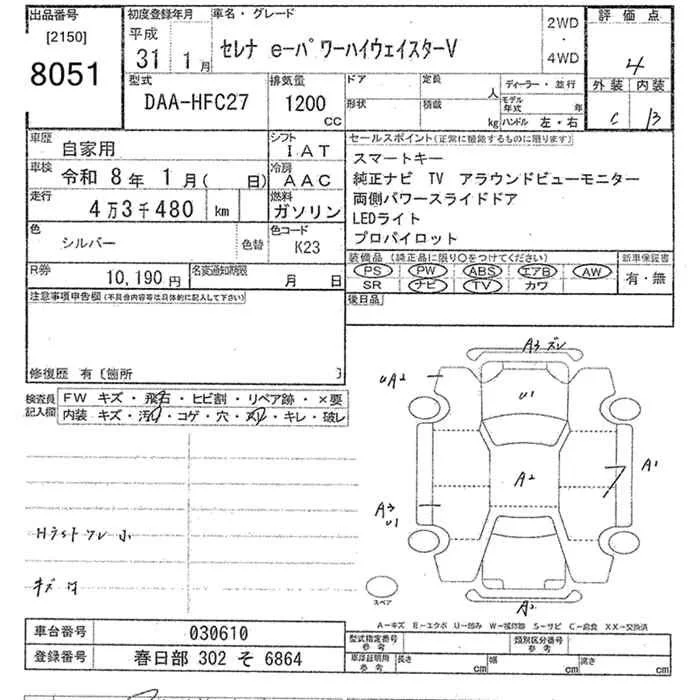 出品番号
[2150]
8051
初度登録年月
平成
31 1月
車名・グレード
セレナ e-パワーハイウェイスターV
2WD
・
4WD
評価点
4
外装 内装
C B
型式
DAA-HFC27
排気量
1200
CC
ドア
定員
人
形状
積載
kg
ディーラー・並行
モデル年式 年
ハンドル 左・右
車歴
自家用
シフト
IAT
車検
令和 8年 1月( 日)
冷房
AAC
走行
4万3千480 km
燃料
ガソリン
色
シルバー
色替
色コード
K23
R券
10,190円
名変通知期限
月 日
セールスポイント(正常に機能するものに限ります)
スマートキー
純正ナビ TV アラウンドビューモニター
両側パワースライドドア
LEDライト
プロパイロット
装備品 (純正品に限り○をつけてください)
PS PW ABS エアB AW
SR ナビ TV カワ
新車保証書
有・無
後日品
注意事項申告欄(不具合内容等は具体的に記入して下さい)
修復歴 有〔箇所 〕
検査員記入欄
FW キズ・飛石・ヒビ割・リペア跡・×要
内装 キズ・汚れ・コゲ・穴・ヌリ・キレ・破レ
Hラストワレ小
キズ
A3 ズレ
UA2
U1
A2
A1
A3
U1
A2
スペア
A-キズ E-エクボ U-凹み W-補修跡 S-サビ C-腐食 XX-交換済
車台番号
030610
登録番号
春日部 302 そ 6864
型式指定番号
参考
類別区分番号
参考
車庫証明用
参考
長さ cm
幅 cm
高さ cm